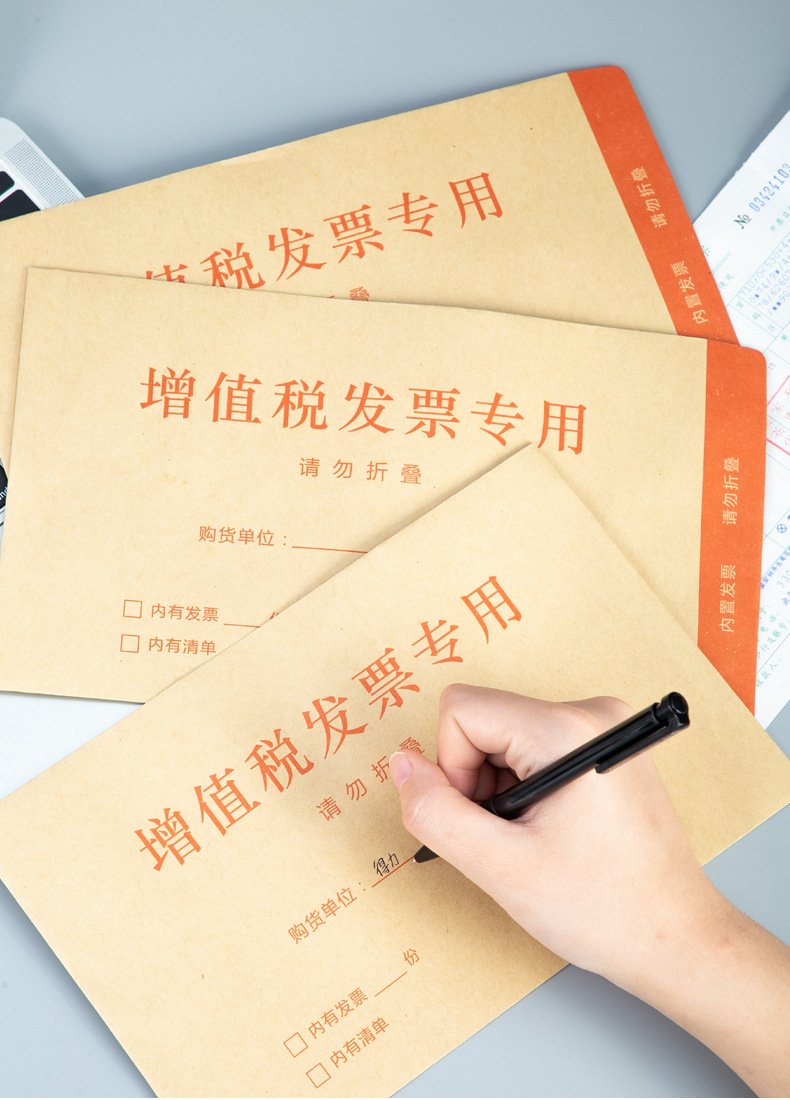 值税发票专用
叠
请勿折叠
内置发票
№ 03424103
增值税发票专用
请勿折叠
购货单位：
内有发票
内有清单
请勿折叠
内置发票
增值税发票专用
请勿折叠
购货单位：得力
内有发票 份
内有清单